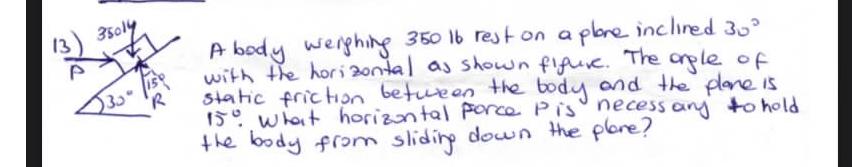 13)
350 lb
P
30°
15°
R
A body weighing 350 lb rest on a plane inclined 30°
with the horizontal as shown figure. The angle of
static friction between the body and the plane is
15°. What horizontal force P is necessary to hold
the body from sliding down the plane?